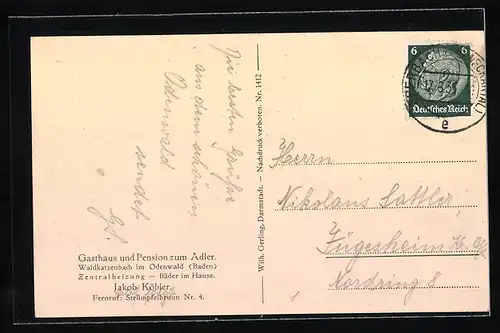 Die besten Grüße
aus dem schönen
Odenwald
sendet
Gasthaus und Pension zum Adler.
Waldkatzenbach im Odenwald (Baden)
Zentralheizung — Bäder im Hause.
Jakob Köbler.
Fernruf: Strümpfelbrunn Nr. 4.
Wilh. Gerling, Darmstadt. — Nachdruck verboten. Nr. 1412
6 6
Deutsches Reich
e
Herrn
Nikolaus Sattler,
Jügesheim
Nordring 8